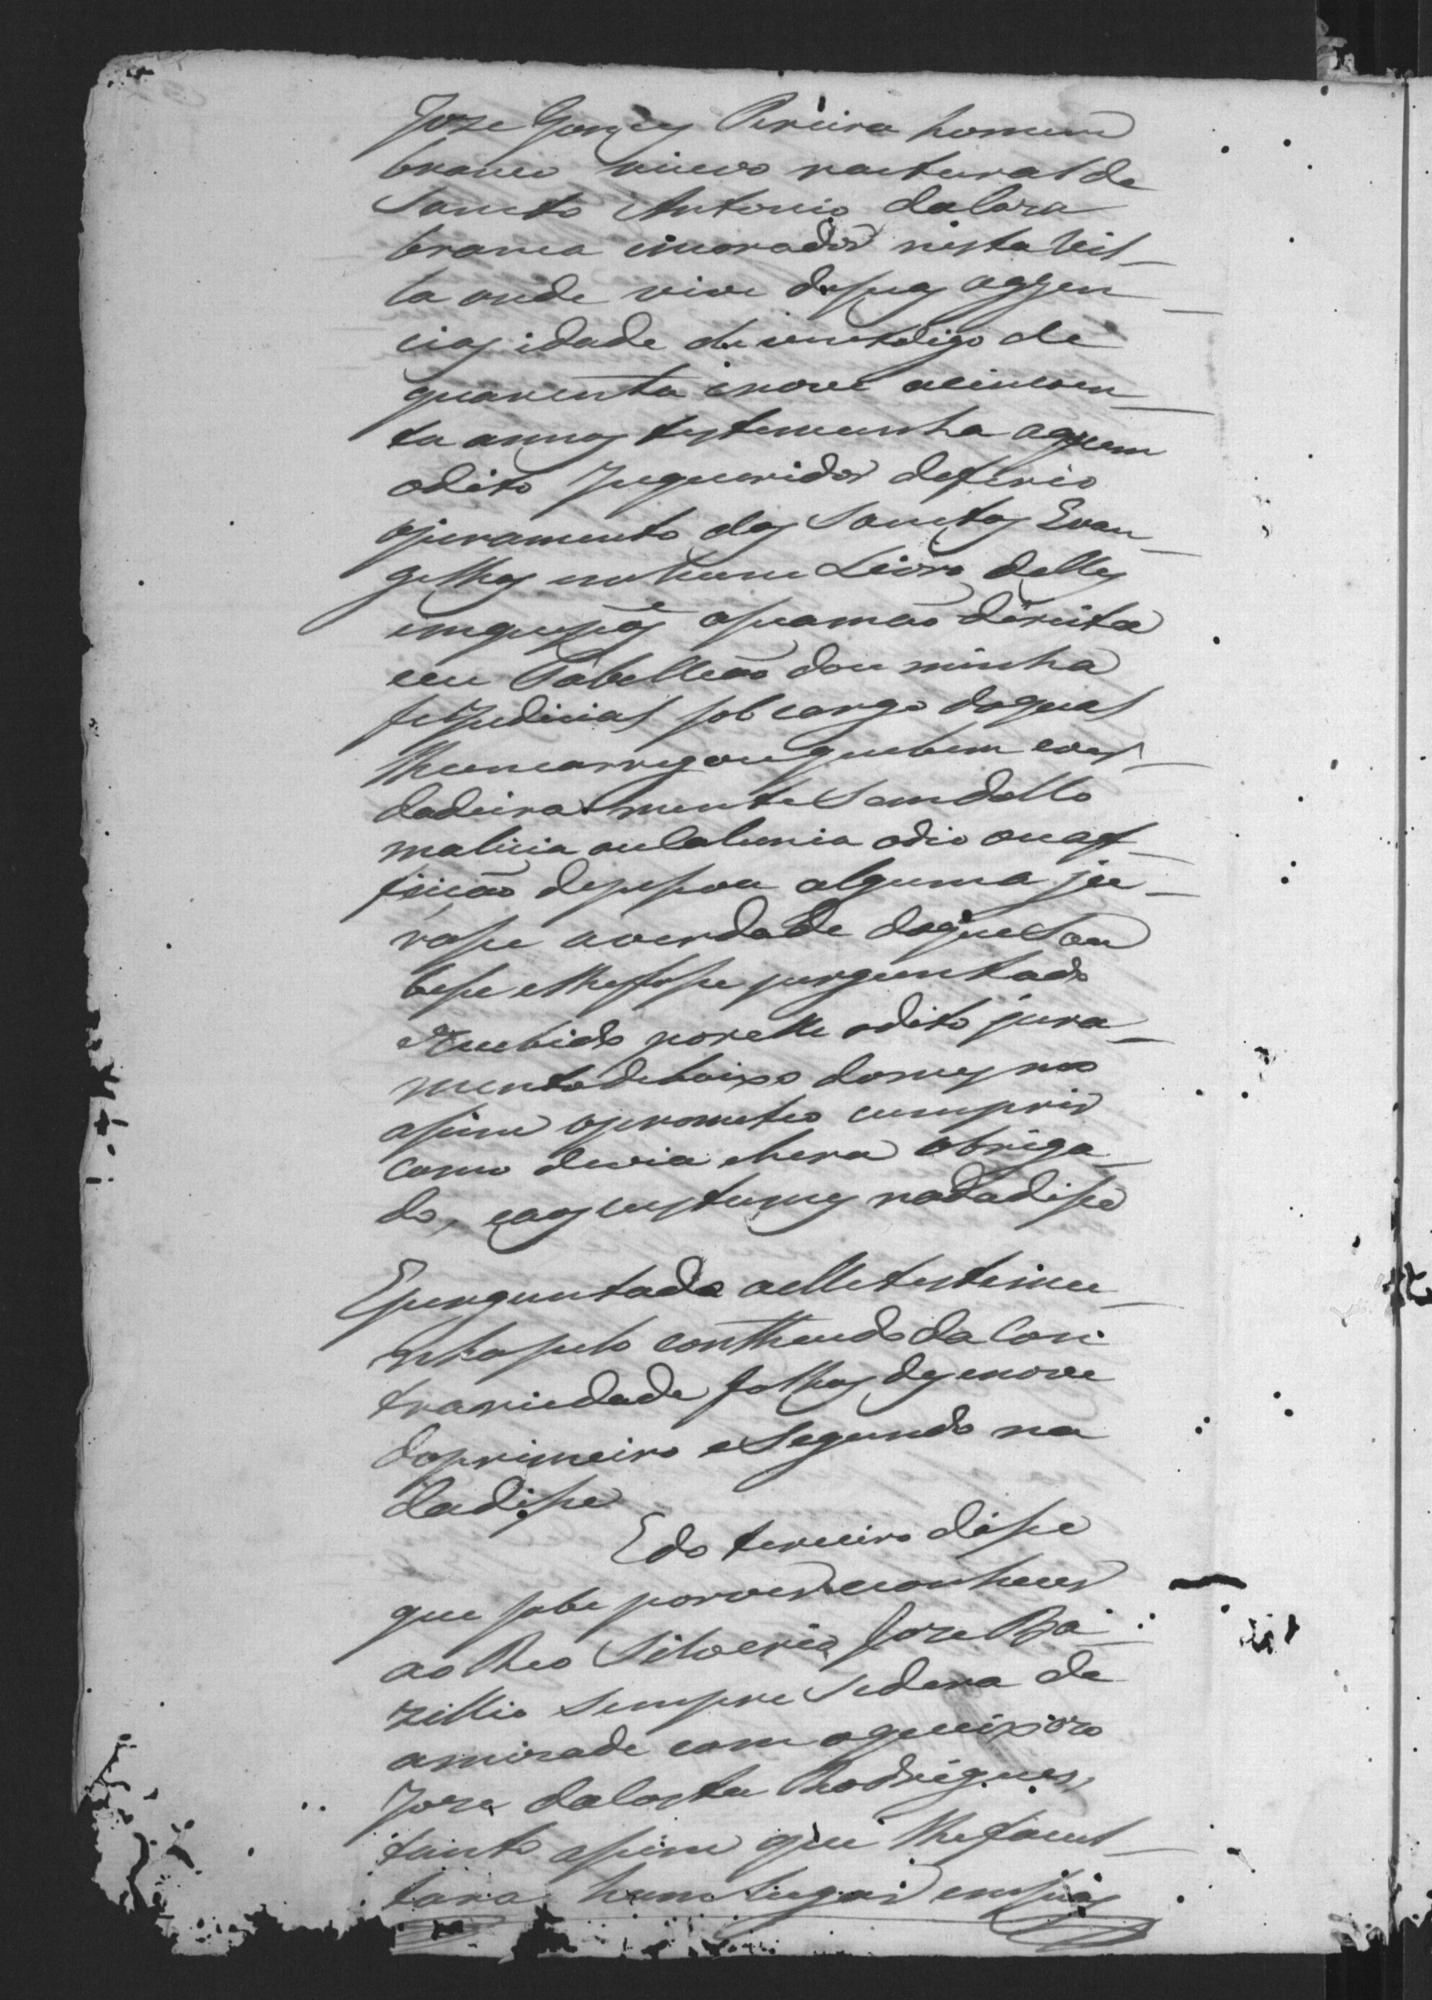 Joze Gonçes Pereira homem
branco viuvo nactural de
Sancto Antonio da Caza
branca emorador nesta Vil-
la onde vive de suas aggen-
cias idade de sua digo de
quarenta enove acincoen-
ta annos testemunha aquem
odito Inqueridor deferio
ojuramento dos Sanctos Evan-
gelhos emhum Livro delles
emquepôs asuamaõ direita
eeu Tabelleaõ dou minha
fe Judicial sob cargo doqual
lheencarregou quebem ever-
dadeira mente Sem dollo
malicia ou Calunia odio ouaf-
feicaõ depessoa alguma ju-
rasse averdade doque Sou
besse elhefosse perguntado
eRecebido porelle odito jura-
mento debaixo domesmo
assim oprometeo cumprir
como devia ehera obriga-
do, eaos custumes nada disse
Eperguntado aelle testemu-
nha pelo contheudo da Con
trariedade folhas desenove
doprimeiro eSegundo na
da disse
Edo terceiro disse
que sabe porver econhecer
ao Reo Silverio Joze Ba-
zillio Sempre Sedera de
amizade com oqueixozo
Joze da Costa Rodrigues,
tanto assim que lhe facul-
tara hum Lugar emsuas